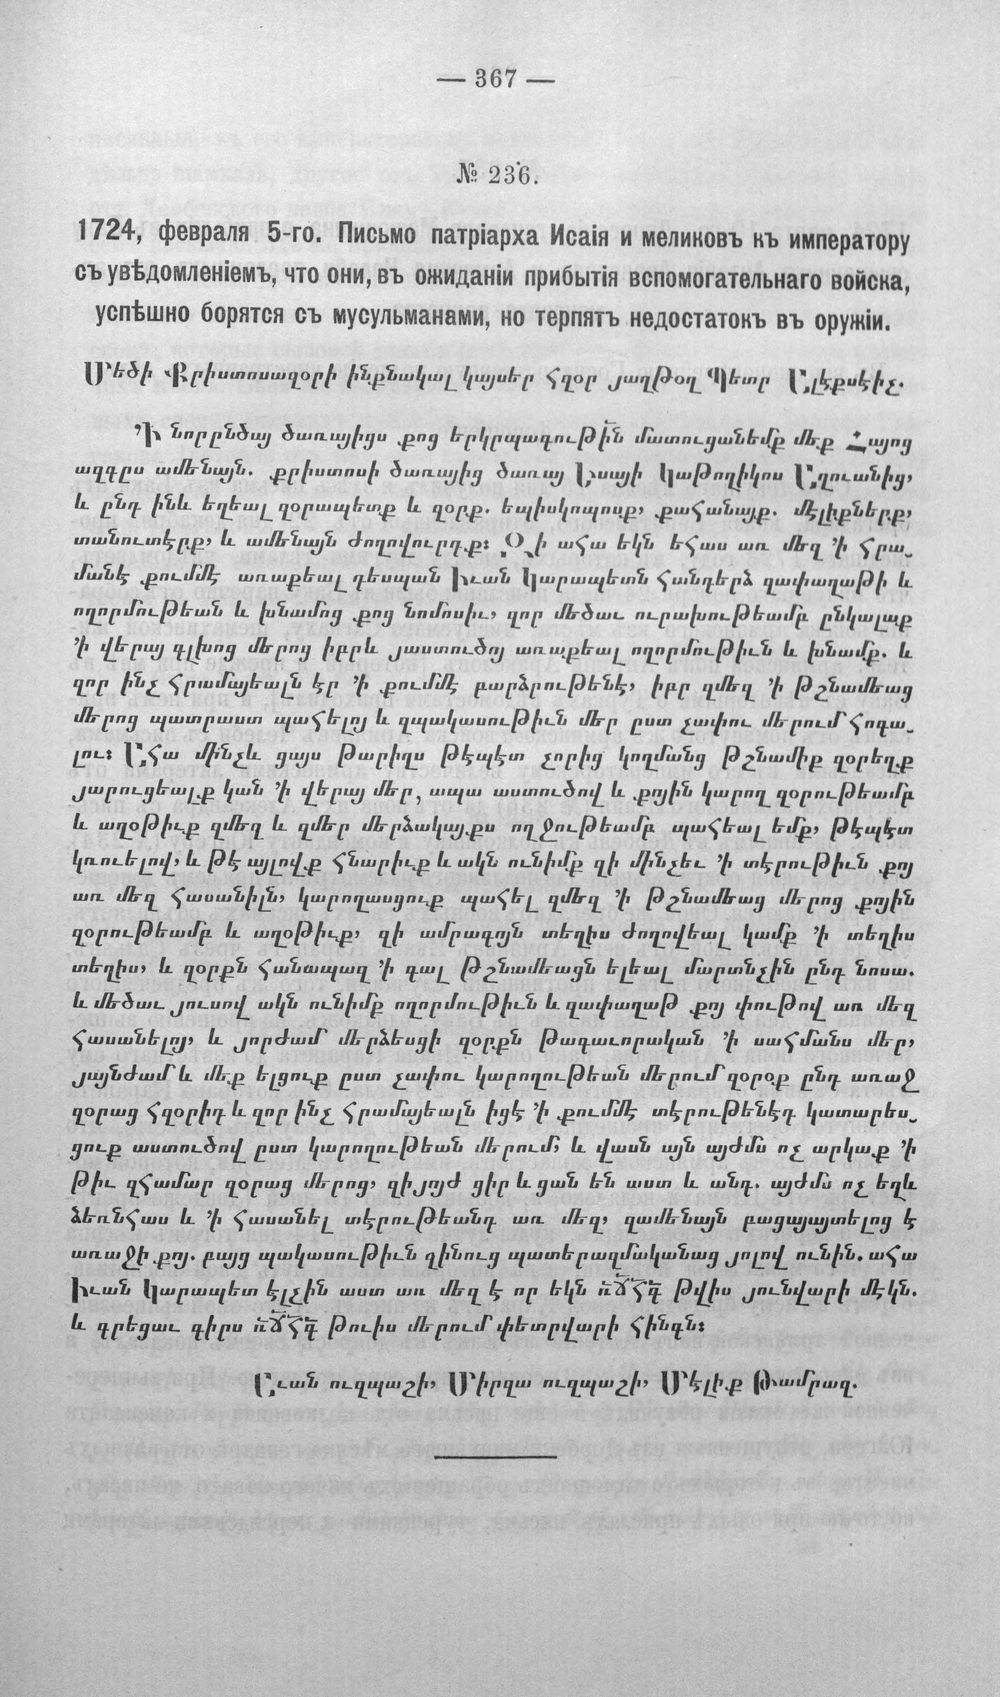 — 367 —
№ 236.
1724, февраля 5-го. Письмо патріарха Исаія и меликовъ къ императору
съ увѣдомленіемъ, что они, въ ожиданіи прибытія вспомогательнаго войска,
успѣшно борятся съ мусульманами, но терпятъ недостатокъ въ оружіи.
Մեծի Քրիստոսազօրի ինքնակալ կայսեր հզօր յաղթօղ Պետր Ալէքսէիչ.
՚Ի նորընծայ ծառայիցս քոց երկրպագութի՟ն մատուցանեմք մեք Հայոց
ազգըս ամենայն. քրիստոսի ծառայից ծառայ Եսայի կաթողիկոս Աղուանից,
և ընդ ինև եղեալ զօրապետք և զօրք. եպիսկոպոսք, քահանայք. մէլիքներք,
տանուտէրք, և ամենայն ժողովուրդք։ Զի ահա եկն եհաս առ մեզ ՚ի հրա֊
մանէ քումմէ առաքեալ դեսպան Իւան Կարապետն հանդերձ զափաղաթի և
ողորմութեան և խնամոց քոց նոմոսիւ, զոր մեծաւ ուրախութեամբ ընկալաք
՚ի վերայ գլխոց մերոց իբրև յաստուծոյ առաքեալ ողորմութիւն և խնամք. և
զոր ինչ հրամայեալն էր ՚ի քումմէ բարձրութենէ, իբր զմեզ ՚ի թշնամեաց
մերոց պատրաստ պահելոյ և զպակասութիւն մեր ըստ չափու մերում հոգա֊
լու։ Ահա մինչև ցայս թարիղս թէպէտ չորից կողմանց թշնամիք զօրեղք
յարուցեալք կան ՚ի վերայ մեր, ապա աստուծով և քոյին կարող զօրութեամբ
և աղօթիւք զմեզ և զմեր մերձակայքս ողջութեամբ պահեալ եմք, թէպէտ
կռուելով, և թէ այլովք հնարիւք և ակն ունիմք զի մինչեւ ՚ի տէրութիւն քոյ
առ մեզ հասանիլն, կարողասցուք պահել զմեզ ՚ի թշնամեաց մերոց քոյին
զօրութեամբ և աղօթիւք, զի ամրագոյն տեղիս ժողովեալ կամք ՚ի տեղիս
տեղիս, և զօրքն հանապազ ՚ի գալ թշնամեացն ելեալ մարտնչին ընդ նոսա.
և մեծաւ յուսով ակն ունիմք ողորմութիւն և զափաղաթ քոյ փութով առ մեզ
հասանելոյ, և յորժամ մերձեսցի զօրքն թագաւորական ՚ի սահմանս մեր,
յայնժամ և մեք ելցուք ըստ չափու կարողութեան մերում զօրօք ընդ առաջ
զօրաց հզօրիդ և զոր ինչ հրամայեալն իցէ ՚ի քումմէ տէրութենէդ կատարես֊
ցուք աստուծով ըստ կարողութեան մերում, և վասն այն այժմս ոչ արկաք ՚ի
թիւ զհամար զօրաց մերոց, զիյոյժ ցիր և ցան են աստ և անդ. այժմս ոչ եղև
ձեռնհաս և ՚ի հասանել տէրութեանդ առ մեզ, զամենայն բացայայտելոց է
առաջի քոյ. բայց պակասութիւն զինուց պատերազմականաց յոլով ունին. ահա
Իւան Կարապետ էլչին աստ առ մեզ է որ եկն ռ՟ճ՟հ՟գ՟ թվիս յունվարի մէկն.
և գրեցաւ գիրս ռ՟ճ՟հ՟գ՟ թուիս մերում փետրվարի հինգն։
Աւան ուզպաշի, Միրզա ուզպաշի, Մէլիք Թամրազ.